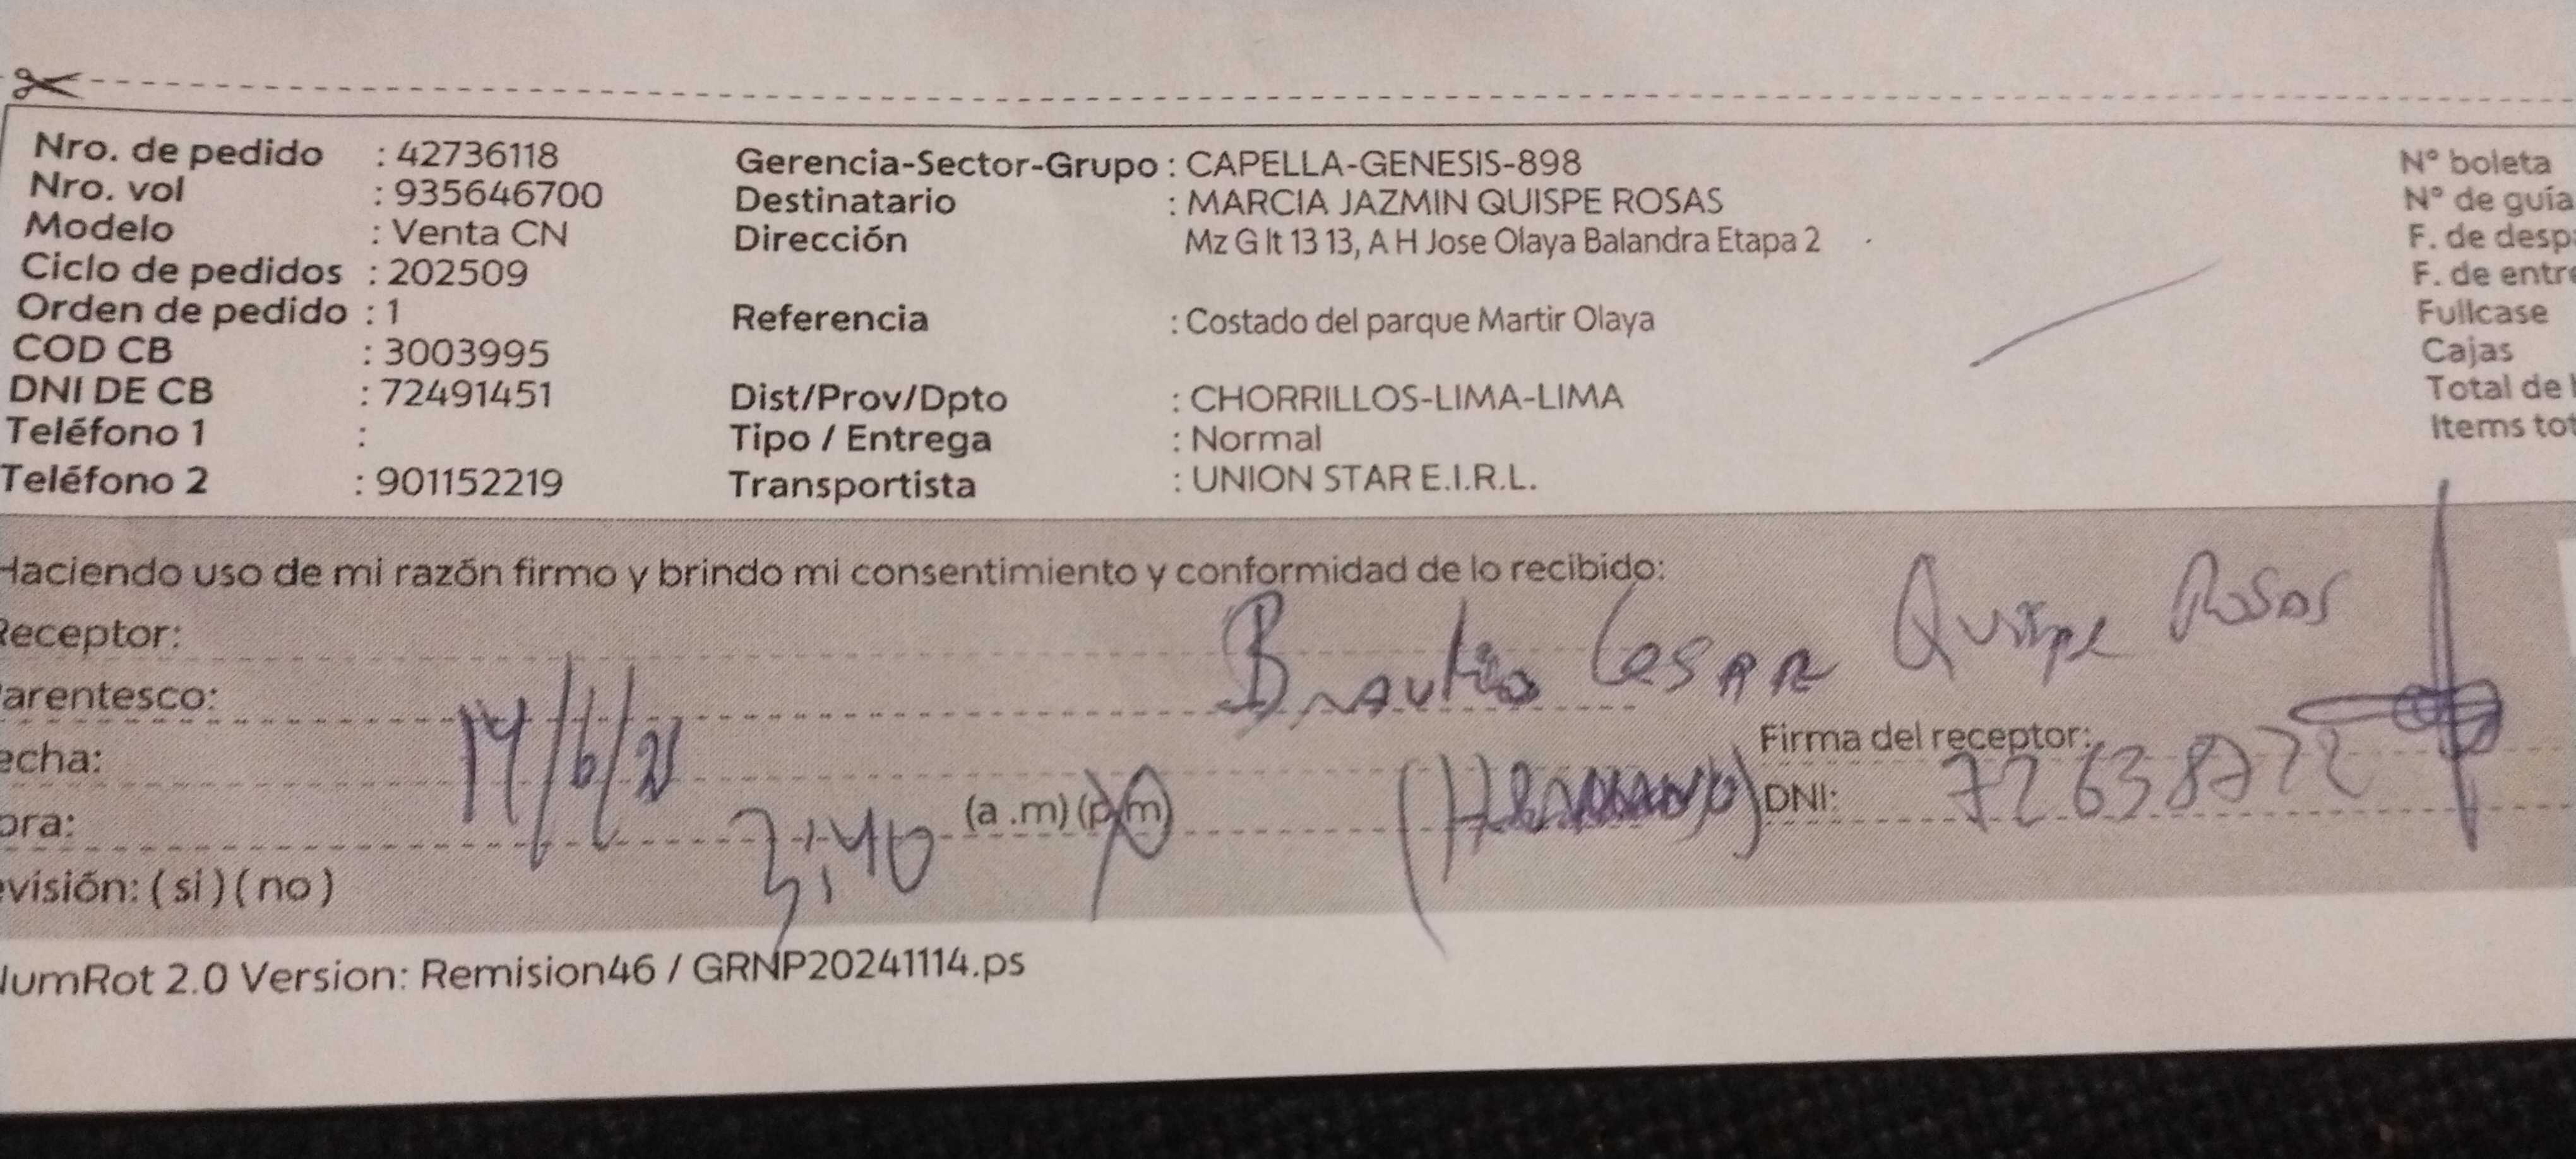 Nro. de pedido : 42736118
Nro. vol : 935646700
Modelo : Venta CN
Ciclo de pedidos : 202509
Orden de pedido : 1
COD CB : 3003995
DNI DE CB : 72491451
Teléfono 1 :
Teléfono 2 : 901152219
Gerencia-Sector-Grupo : CAPELLA-GENESIS-898
Destinatario : MARCIA JAZMIN QUISPE ROSAS
Dirección Mz G lt 13 13, A H Jose Olaya Balandra Etapa 2
Referencia : Costado del parque Martir Olaya
Dist/Prov/Dpto : CHORRILLOS-LIMA-LIMA
Tipo / Entrega : Normal
Transportista : UNION STAR E.I.R.L.
N° boleta
N° de guía
F. de desp
F. de entre
Fullcase
Cajas
Total de
Items tot
Haciendo uso de mi razón firmo y brindo mi consentimiento y conformidad de lo recibido:
Receptor: Braulio Cesar Quispe Rosas
arentesco: (Hermano)
echa: 14/6/25
ora: 3:40 (a .m) (p.m)
Firma del receptor:
DNI: 72638772
evisión: ( si ) ( no )
NumRot 2.0 Version: Remision46 / GRNP20241114.ps